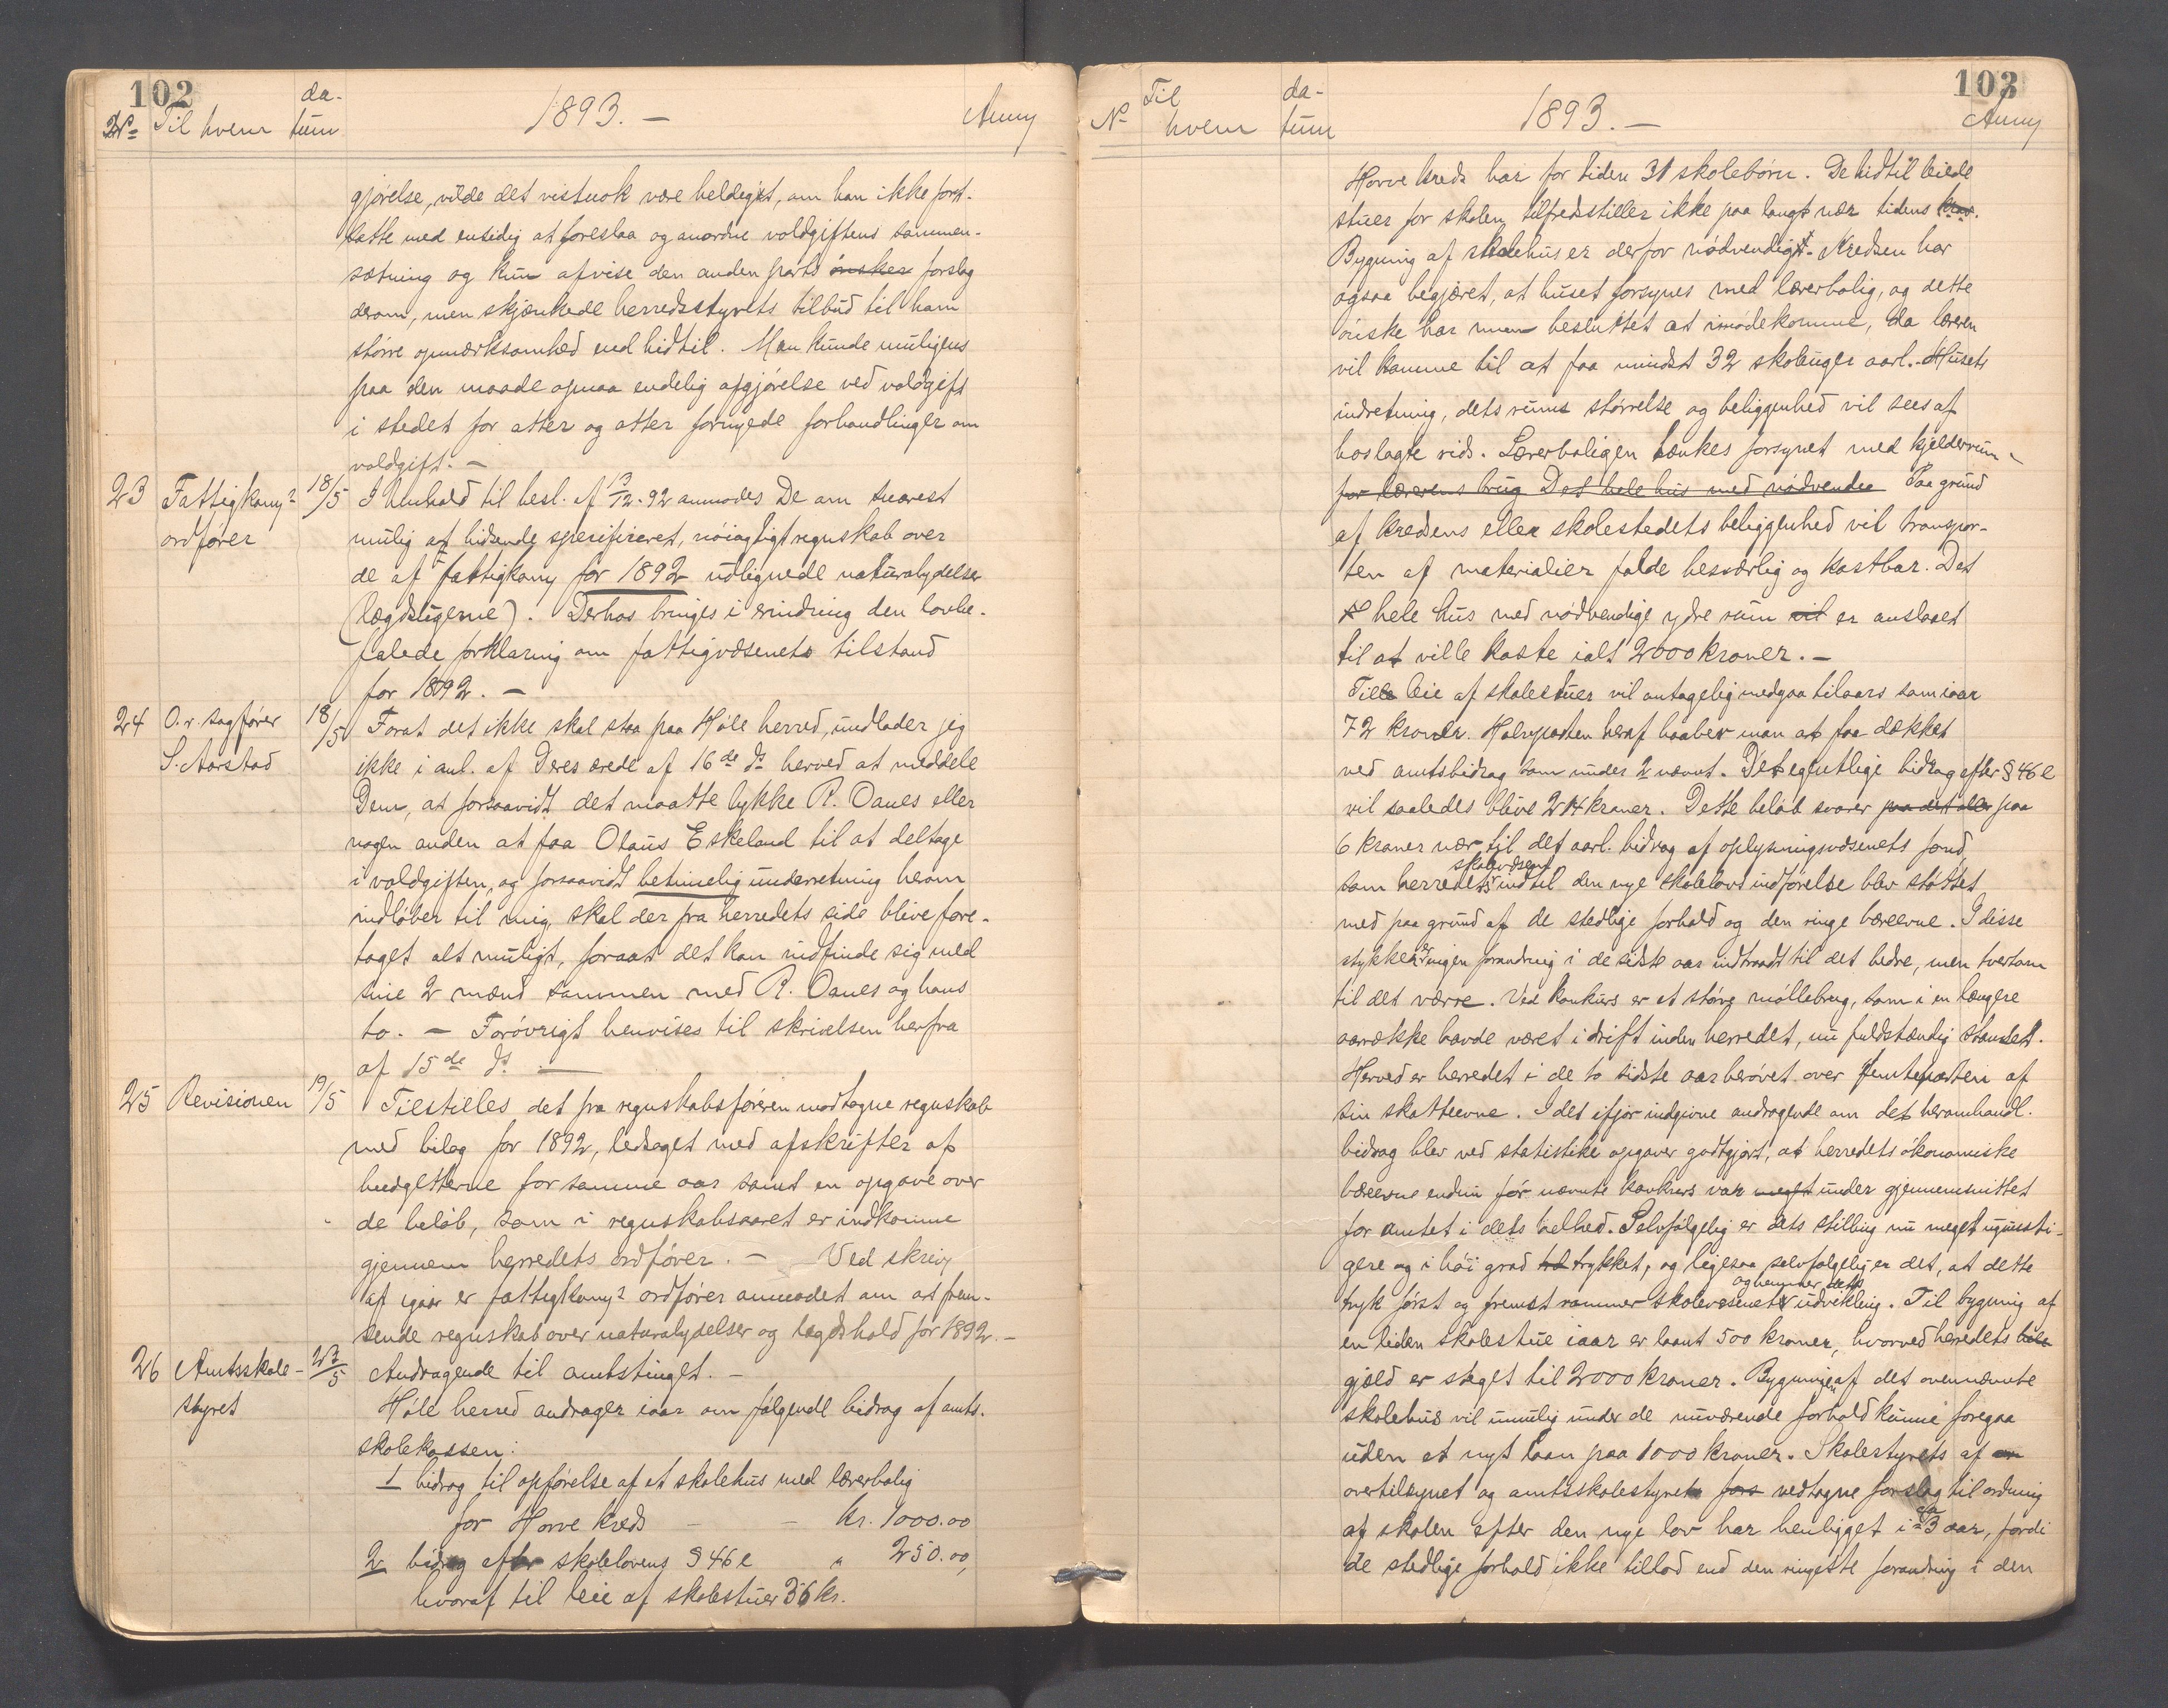 102
No Til hvem datum 1893. — Anm
gjørelse, vilde det vistnok være heldigst, om han ikke fort-
satte med ensidig at foreslaa og anordne voldgiftens sammen-
sætning og kun afvise den anden parts ønsker forslag
derom, men skjænkede herredsstyrets tilbud til ham
større opmærksomhed end hidtil. Man kunde muligens
paa den maade opnaa endelig afgjørelse ved voldgift
i stedet for atter og atter fornyede forhandlinger om
voldgift. —
23 Fattigkom? ordfører 18/5 I henhold til besl. af 13/12-92 anmodes De om snarest
mulig at hidsende specificeret, nøiagtigt regnskab over
de af fattigkom for 1892 udlignede naturalydelser
(lægdsligerne). Derhos bringes i erindring den lovbe-
falede forklaring om fattigvæsenets tilstand
for 1892. —
24 O.r. sagfører S. Aarstad 18/5 Forat det ikke skal staa paa Høle herred, undlader jeg
ikke i anl. af Deres ærede af 16de ds herved at meddele
Dem, at forsaavidt det maatte lykke R. Oanes eller
nogen anden at faa Olaus Eskeland til at deltage
i voldgiften, og forsaavidt betimelig underretning herom
indløber til mig, skal der fra herredets side blive fore-
taget alt muligt, foraat det kan indfinde sig med
sine 2 mænd sammen med R. Oanes og hans
to. — Forøvrigt henvises til skrivelsen herfra
af 15de ds. —
25 Revisionen 19/5 Tilstilles det fra regnskabsføreren modtagne regnskab
med bilag for 1892, ledsaget med afskrifter af
budgetterne for samme aar samt en opgave over
de beløb, som i regnskabsaaret er indkomne
gjennem herredets ordfører. — Ved skriv
af igaar er fattigkom? ordfører anmodet om at frem-
sende regnskab over naturalydelser og lægdshold for 1892. —
26 Amtsskole- styret 23/5 Andragende til amtstinget. —
Høle herred andrager iaar om følgende bidrag af amts-
skolekassen:
1 bidrag til opførelse af et skolehus med lærerbolig
for Horve kreds — — kr. 1000.00
2 bidrag efter skolelovens § 46 e " 250.00,
hvoraf til leie af skolestuer 36 kr.
103
No Til hvem datum 1893. — Anm
Horve kreds har for tiden 31 skolebørn. De hidtil leiede
stuer for skolen tilfredsstiller ikke paa langt nær tidens krav.
Bygning af skolehus er derfor nødvendigt. Kredsen har
ogsaa begjæret, at huset forsynes med lærerbolig, og dette
ønske har man besluttet at imødekomme, da læreren
vil komme til at faa mindst 32 skoleuger aarl. Husets
indretning, dets rums størrelse og beliggenhed vil sees af
hoslagte rids. Lærerboligen tænkes forsynet med kjelderrum
for lærerens brug Det hele hus med nødvendie Paa grund
af kredsens eller skolestedets beliggenhed vil transpor-
ten af materialier falde besværlig og kostbar. Det
hele hus med nødvendige ydre rum vil er anslaaet
til at ville koste ialt 2000 kroner. —
Til leie af skolestuer vil antagelig medgaa tilaars som iaar
72 kroner. Halvparten heraf haaber man at faa dækket
ved amtsbidrag som under 2 nævnt. Det egentlige bidrag efter § 46 e
vil saaledes blive 214 kroner. Dette beløb svarer paa det aller paa
6 kroner nær til det aarl. bidrag af oplysningsvæsenets fond,
skolevæsen
som herredets indtil den nye skolelovs indførelse blev støttet
med paa grund af de stedlige forhold og den ringe bæreevne. I disse
stykker er ingen forandring i de sidste aar indtraadt til det bedre, men tvertom
til det værre. Ved konkurs er et større møllebrug, som i en længere
aarrække havde været i drift inden herredet, nu fuldstændig standset.
Herved er herredet i de to sidste aar berøvet over femteparten af
sin skatteevne. I det ifjor indgivne andragende om det heromhandl.
bidrag blev ved statistike opgaver godtgjort, at herredets økonomiske
bæreevne endnu før nævnte konkurs var meget under gjennemsnittet
for amtet i dets helhed. Selvfølgelig er dets stilling nu meget ugunsti-
gere og i høi grad trykket, og ligesaa selvfølgelig er det, at dette
og hemmer dets
tryk først og fremst rammer skolevæsenet udvikling. Til bygning af
en liden skolestue iaar er laant 500 kroner, hvorved herredets hele
gjæld er steget til 2000 kroner. Bygningen af det ovennævnte
skolehus vil umulig under de nuværende forhold kunne foregaa
uden et nyt laan paa 1000 kroner. Skolestyrets af
overtilsynet og amtsskolestyret fors vedtagne forslag til ordning
af skolen efter den nye lov har henligget i ca 3 aar, fordi
de stedlige forhold ikke tillod end den ringeste forandring i den